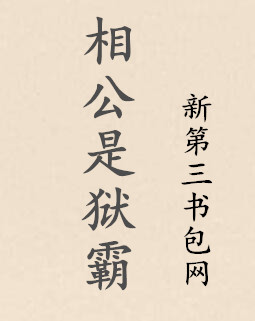 相公是狱霸
新第三书包网